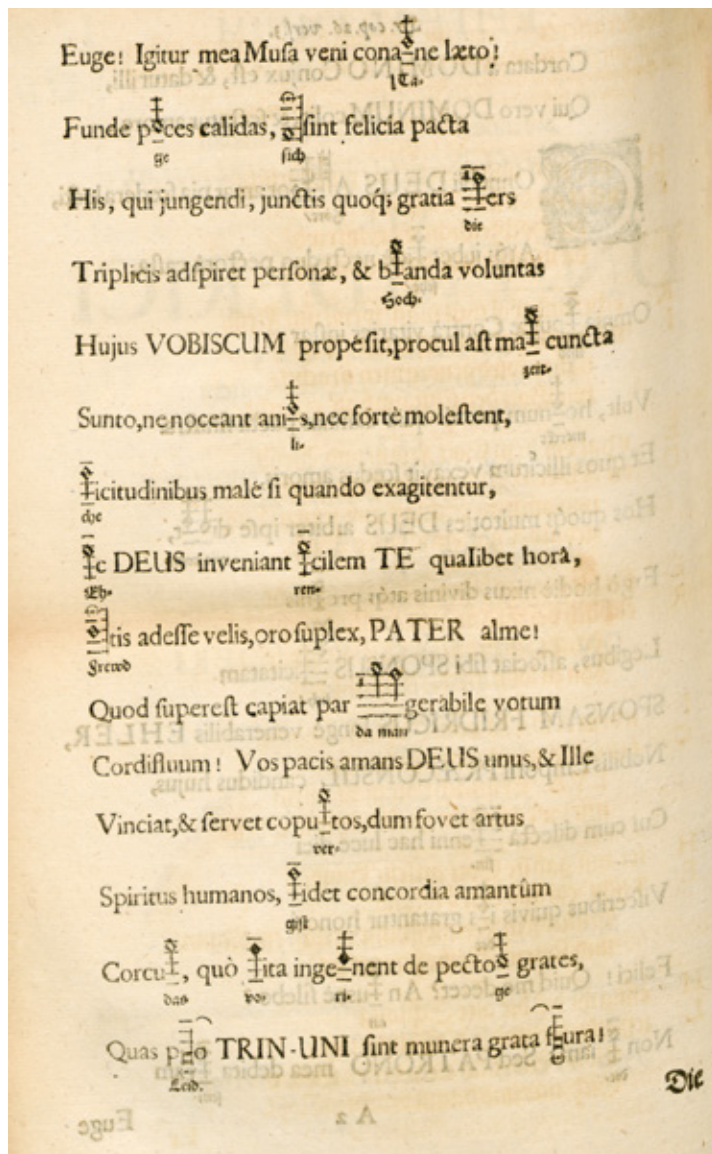 Euge! Igitur mea Muſa veni cona ne læto!
ſTa-
Funde p ces calidas, ſint felicia pacta
ge ſich
His, qui jungendi, junctis quoq; gratia ers
die
Triplicis adſpiret perſonæ, & b anda voluntas
Hoch-
Hujus VOBISCUM propè ſit, procul aſt ma cuncta
zeit-
Sunto, ne noceant ani s, nec fortè moleſtent,
li-
icitudinibus malè ſi quando exagitentur,
che
c DEUS inveniant cilem TE qualibet horâ,
Eh- ren-
tis adeſſe velis, oro ſuplex, PATER alme!
Frewd
Quod ſupereſt capiat par gerabile votum
da man
Cordifluum! Vos pacis amans DEUS unus, & Ille
Vinciat, & ſervet copu tos, dum fovet artus
ver-
Spiritus humanos, idet concordia amantûm
giſt
Corcu , quò ita inge nent de pecto grates,
das vo- ri- ge
Quas p o TRIN-UNI ſint munera grata f ura!
Leid.
Die